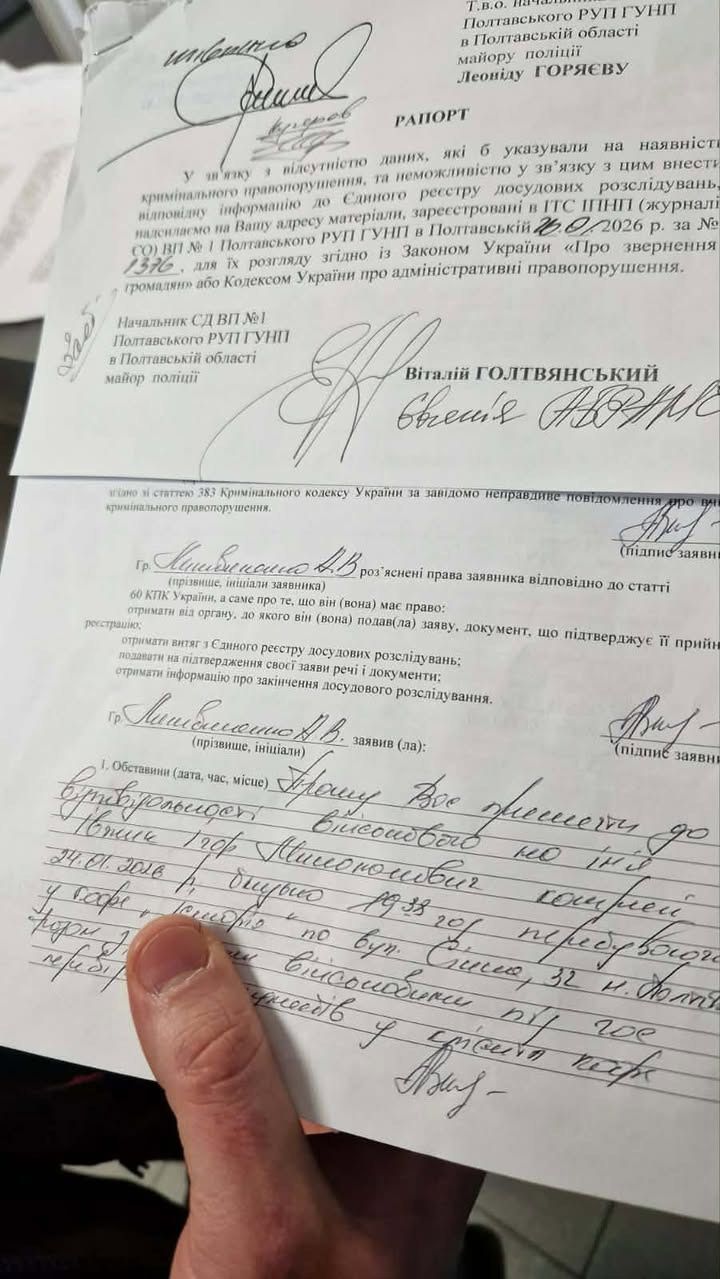 Т.в.о. начальника
Полтавського РУП ГУНП
в Полтавській області
майору поліції
Леоніду ГОРЯЄВУ
РАПОРТ
У зв'язку з відсутністю даних, які б указували на наявність
кримінального правопорушення, та неможливістю у зв'язку з цим внести
відповідну інформацію до Єдиного реєстру досудових розслідувань,
надсилаємо на Вашу адресу матеріали, зареєстровані в ІТС ІПНП (журналі
СО) ВП № 1 Полтавського РУП ГУНП в Полтавській 26.01.2026 р. за №
1376, для їх розгляду згідно із Законом України «Про звернення
громадян» або Кодексом України про адміністративні правопорушення.
Начальник СД ВП №1
Полтавського РУП ГУНП
в Полтавській області
майор поліції
Віталій ГОЛТВЯНСЬКИЙ
Євгенія
згідно зі статтею 383 Кримінального кодексу України за завідомо неправдиве повідомлення про
кримінального правопорушення.
(підпис заявн
Гр. А.В роз'яснені права заявника відповідно до статті
(прізвище, ініціали заявника)
60 КПК України, а саме про те, що він (вона) має право:
отримати від органу, до якого він (вона) подав(ла) заяву, документ, що підтверджує її прийн
реєстрацію;
отримати витяг з Єдиного реєстру досудових розслідувань;
подавати на підтвердження своєї заяви речі і документи;
отримати інформацію про закінчення досудового розслідування.
Гр. А.В. заявив (ла):
(прізвище, ініціали)
(підпис заявни
1. Обставини (дата, час, місце) Прошу Вас до
військового
Ігор
24.01.2026 р. 1938 год
у кафе по вул. 32 м.
військовими під час
у кафе